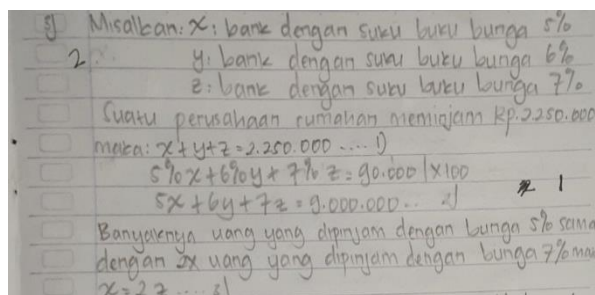 5) Misalkan: x: bank dengan suku buku bunga 5%
2 y: bank dengan suku buku bunga 6%
z: bank dengan suku buku bunga 7%
Suatu perusahaan rumahan meminjam Rp.2.250.000
maka: x+y+z=2.250.000 .... 1)
5%x+6%y+7%z=90.000 |x100
5x+6y+7z=9.000.000... 2) 1
Banyaknya uang yang dipinjam dengan bunga 5% sama
dengan 2x uang yang dipinjam dengan bunga 7% maka
x=2z .... 3)